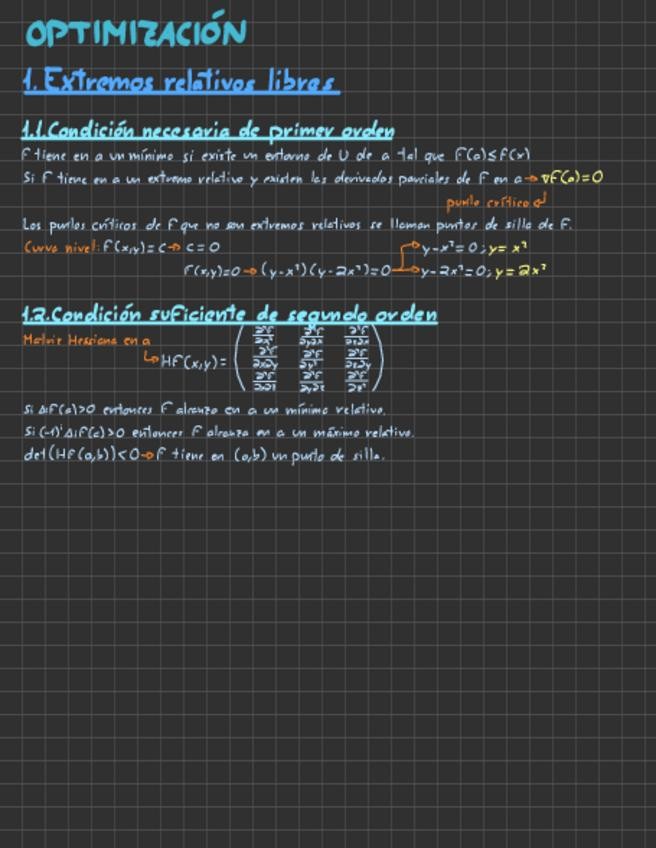 OPTIMIZACIÓN
1. Extremos relativos libres
1.1. Condición necesaria de primer orden
F tiene en a un mínimo si existe un entorno de U de a tal que F(a)≤F(x)
Si F tiene en a un extremo relativo y existen las derivadas parciales de F en a→∇F(a)=0
punto crítico ↲
Los puntos críticos de F que no son extremos relativos se llaman puntos de silla de F.
Curva nivel: F(x,y)=c→ c=0
y-x²=0; y=x²
F(x,y)=0→(y-x²)(y-2x²)=0→y-2x²=0; y=2x²
1.2. Condición suficiente de segundo orden
Matriz Hessiana en a
↳HF(x,y)=
Si ΔiF(a)>0 entonces F alcanza en a un mínimo relativo.
Si (-1)ⁱΔiF(a)>0 entonces F alcanza en a un máximo relativo.
det(HF(a,b))<0→F tiene en (a,b) un punto de silla.